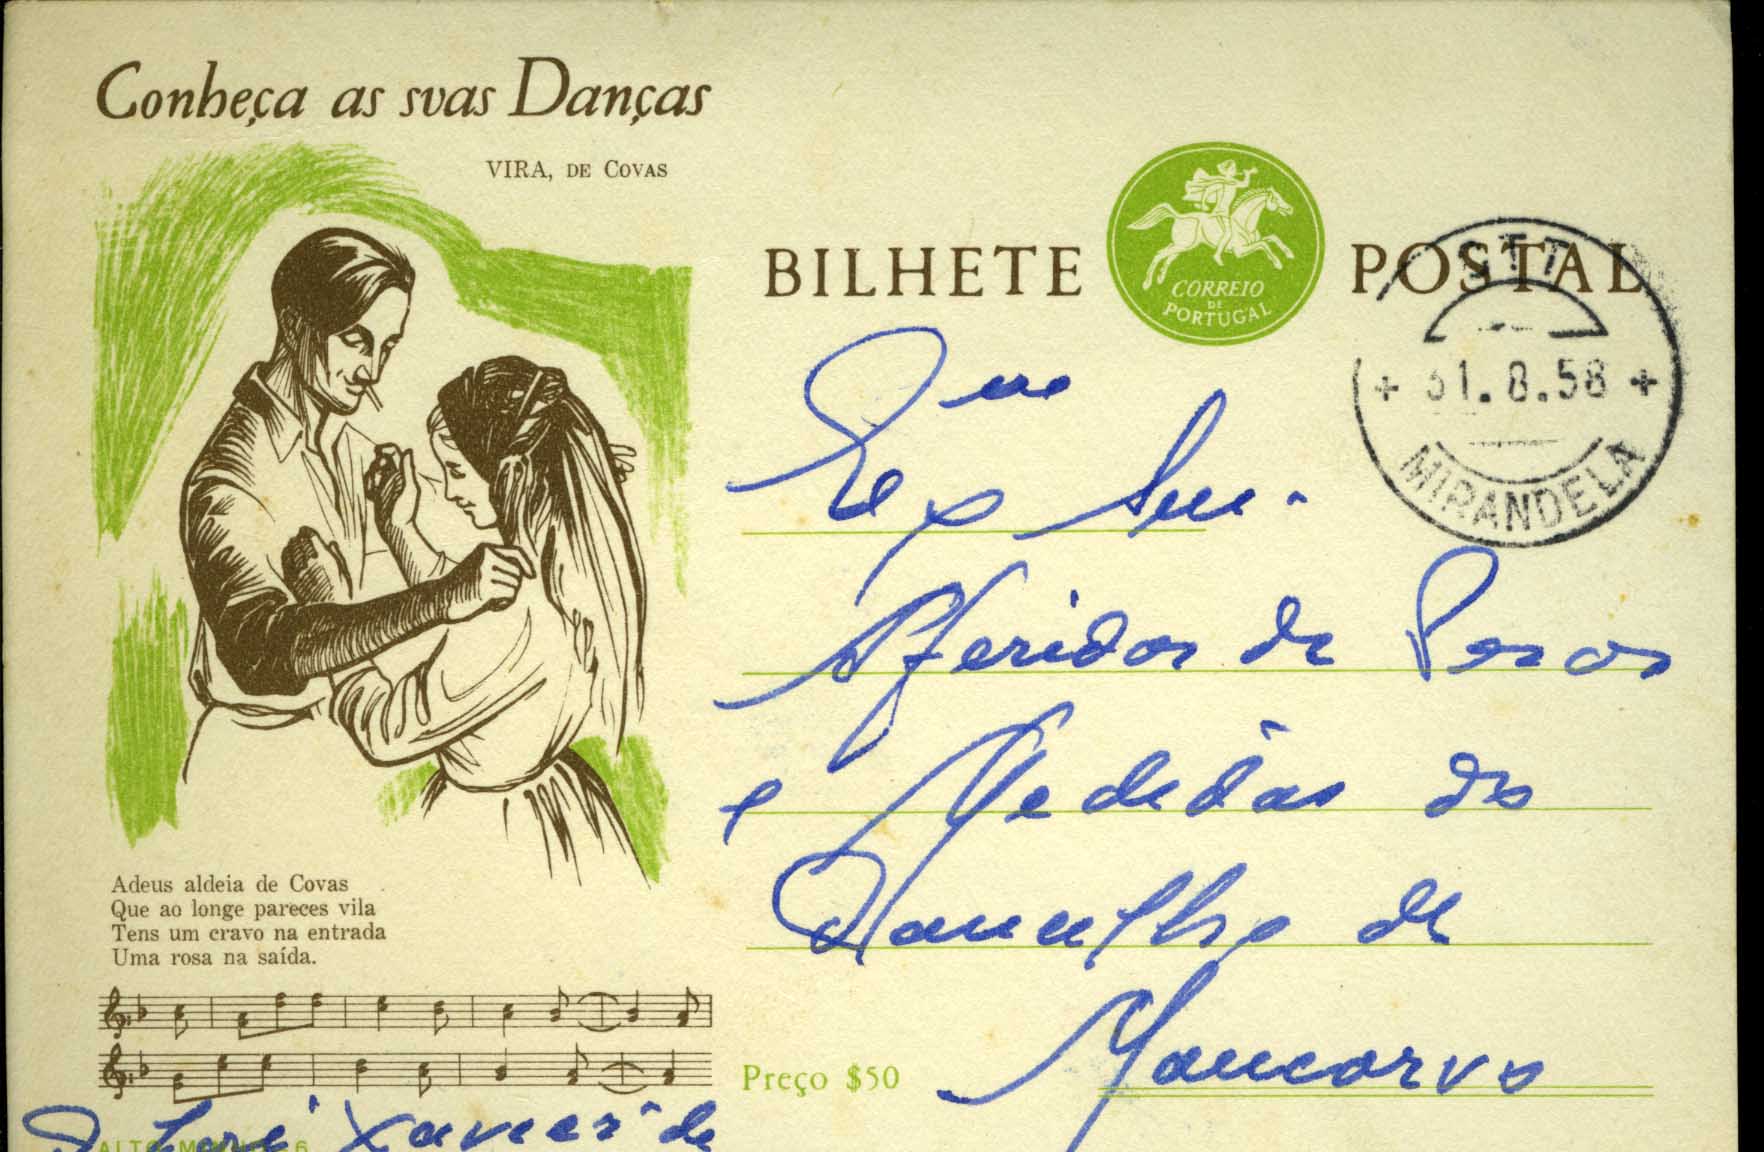 Conheça as suas Danças
VIRA, DE COVAS
BILHETE POSTAL
CORREIO
DE
PORTUGAL
CTT
31.8.58
MIRANDELA
Exmo Snr.
Aferidor de Pesos
e Medidas do
Concelho de
Moncorvo
Adeus aldeia de Covas
Que ao longe pareces vila
Tens um cravo na entrada
Uma rosa na saída.
Preço $50
José Xavier de
ALTO MINHO 6